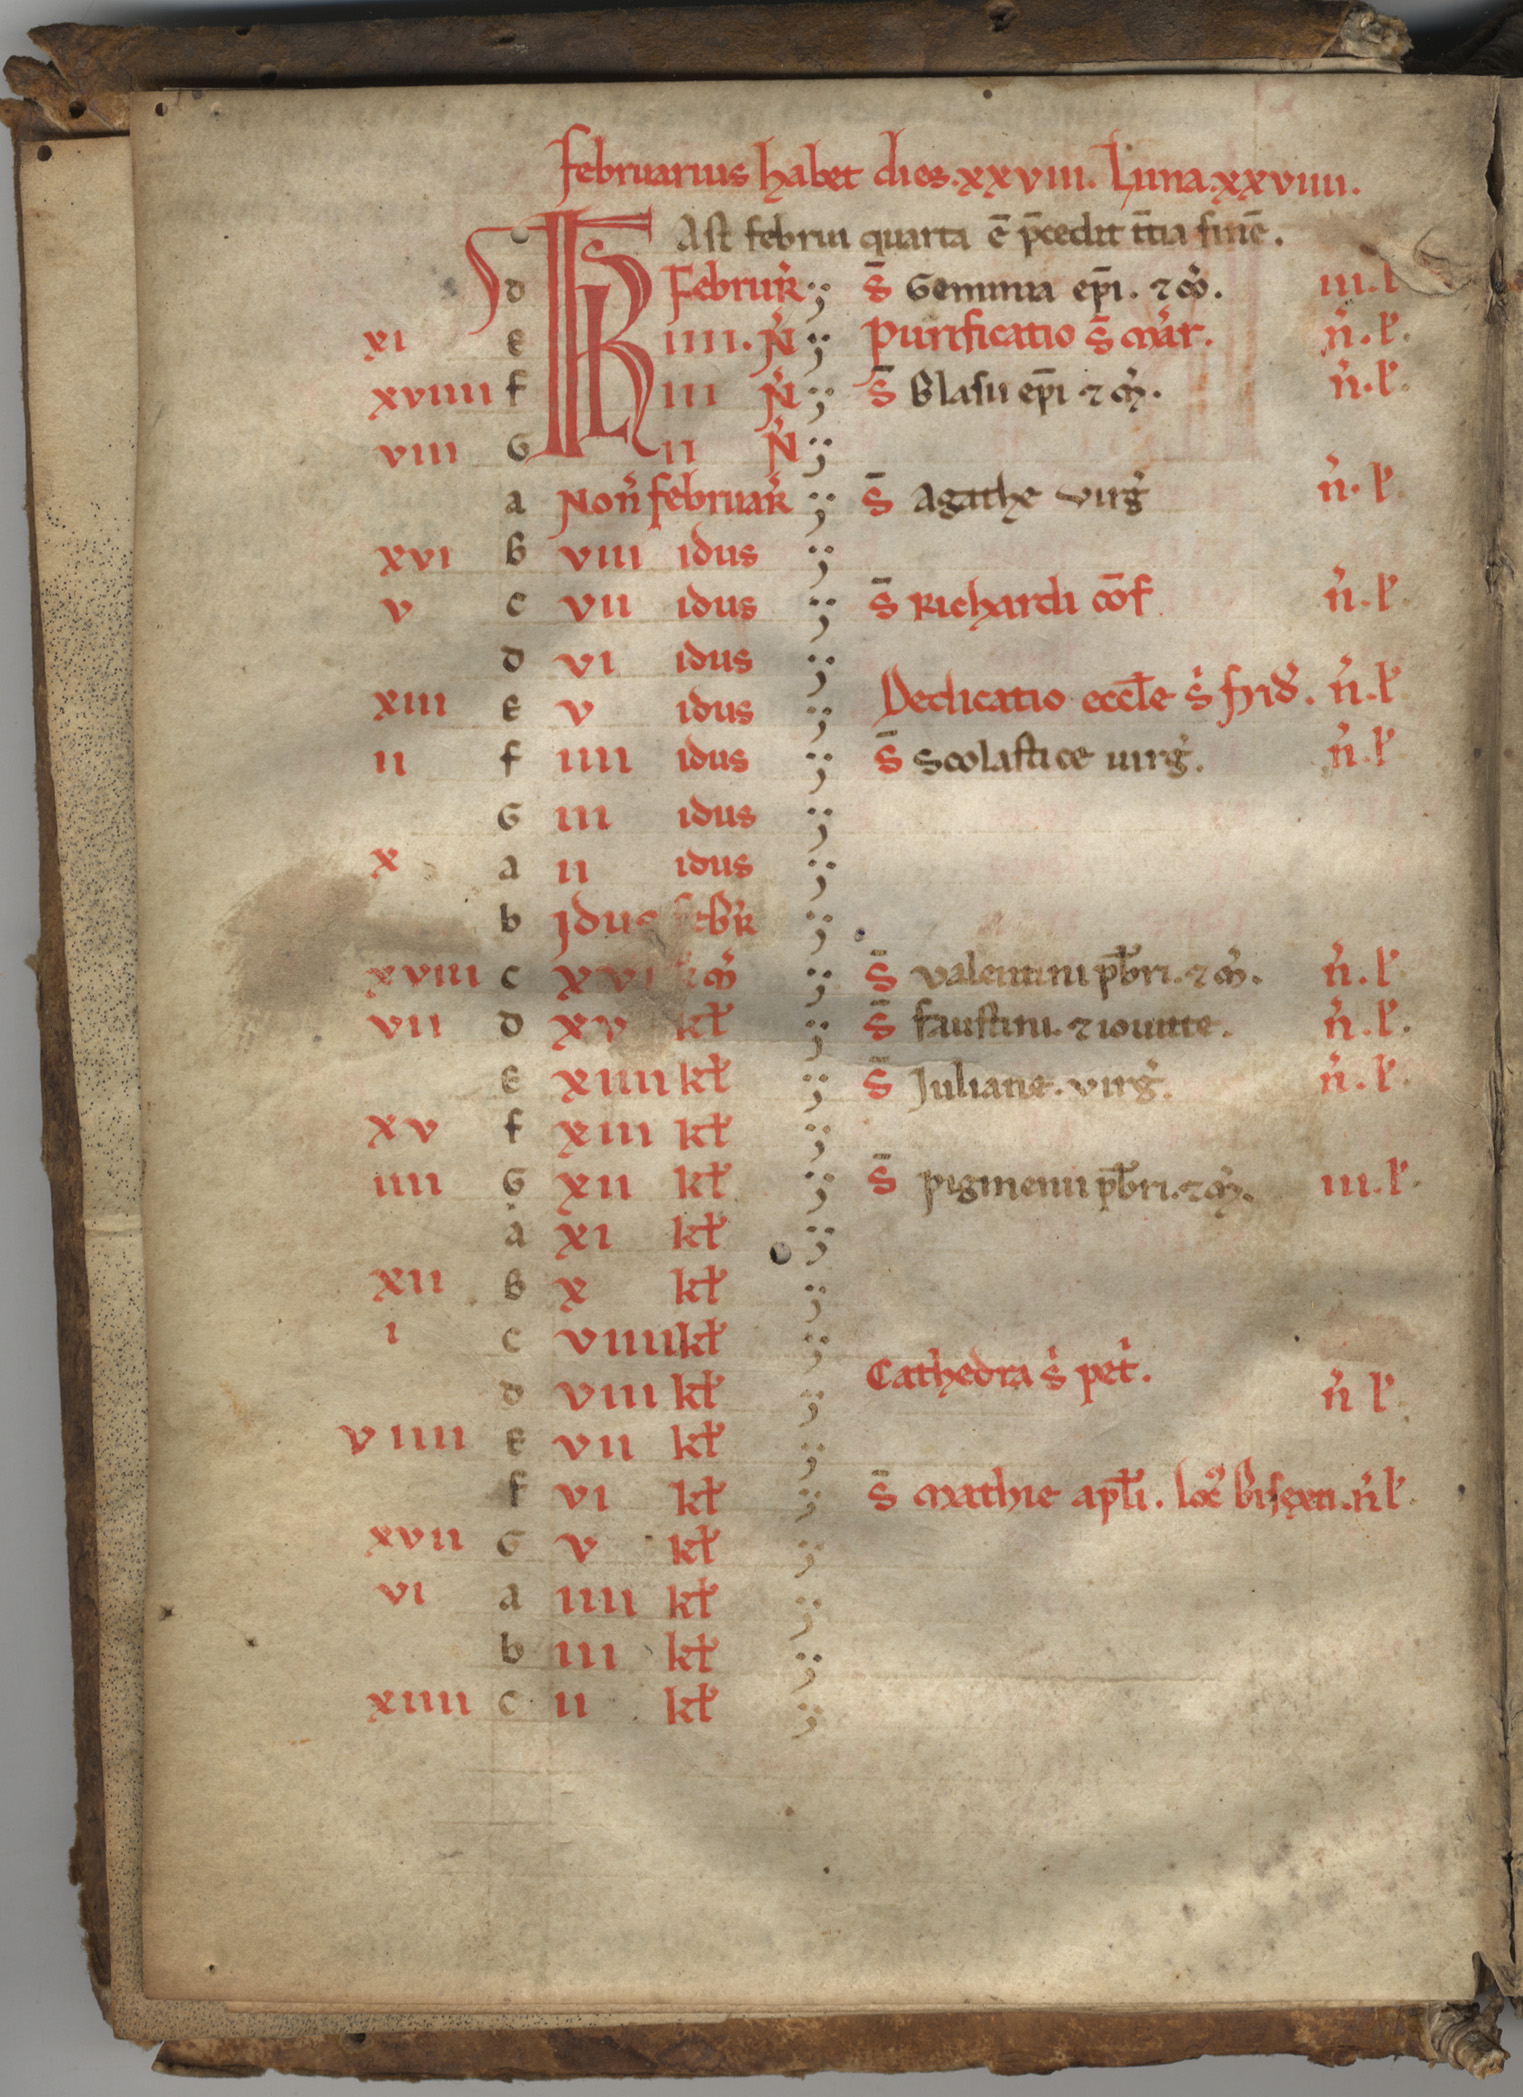 februarius habet dies.xxviii. Luna.xxviiii.
Ast februi quarta ē p̄cedit t̄tia finē.
d KL Februar̄ s̄ Gemina ep̄i. ⁊ ꝯ̄. iii.l̓
xi e iiii. N̄ Purificatio s̄ mar. n̓.l̓.
xviiii f iii N̄ s̄ Blasii ep̄i ⁊ m̄. n̓.l̓.
viii G ii N̄
a Non̄ februar̄ s̄ Agathe virg̓ n̓.l̓.
xvi B viii idus
v c vii idus s̄ Richardi cōf n̓.l̓.
d vi idus
xiii e v idus Dedicatio eccl̄e s̓ frid̓. n̓.l̓
ii f iiii idus s̄ Scolastice uirg̓. n̓.l̓
G iii idus
x a ii idus
b Idus febr̄
xviii c xvi k̄ m̓ s̄ Valentini p̄bri.⁊ m̓. n̓.l̓
vii d xv kł s̄ Faustini.⁊ iouitte. n̓.l̓.
e xiiii kł s̄ Juliane.virg̓. n̓.l̓
xv f xiii kł
iiii G xii kł s̄ pigmenii p̄bri.⁊ m̓. iii.l̓
a xi kł
xii B x kł
i c viiii kł
d viii kł Cathedra s̓ pet̓. n̓ l̓.
viiii e vii kł
f vi kł s̄ mathie apl̄i. loc̓ bisexti.n̓ l̓
xvii G v kł
vi a iiii kł
b iii kł
xiiii c ii kł